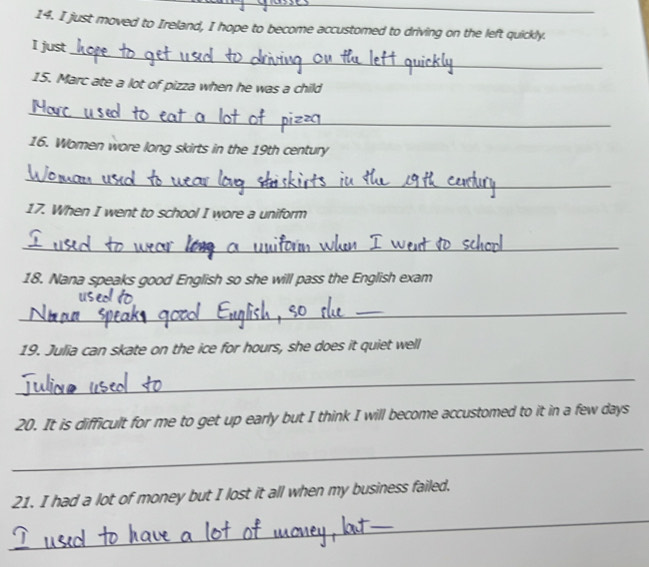 glasses
14. I just moved to Ireland, I hope to become accustomed to driving on the left quickly.
I just hope to get used to driving on the left quickly
15. Marc ate a lot of pizza when he was a child
Marc used to eat a lot of pizza
16. Women wore long skirts in the 19th century
Woman used to wear long skirts in the 19th century
17. When I went to school I wore a uniform
I used to wear a uniform when I went to school
18. Nana speaks good English so she will pass the English exam
used to
Nana speak good English, so she —
19. Julia can skate on the ice for hours, she does it quiet well
Julia used to
20. It is difficult for me to get up early but I think I will become accustomed to it in a few days
21. I had a lot of money but I lost it all when my business failed.
I used to have a lot of money, but —